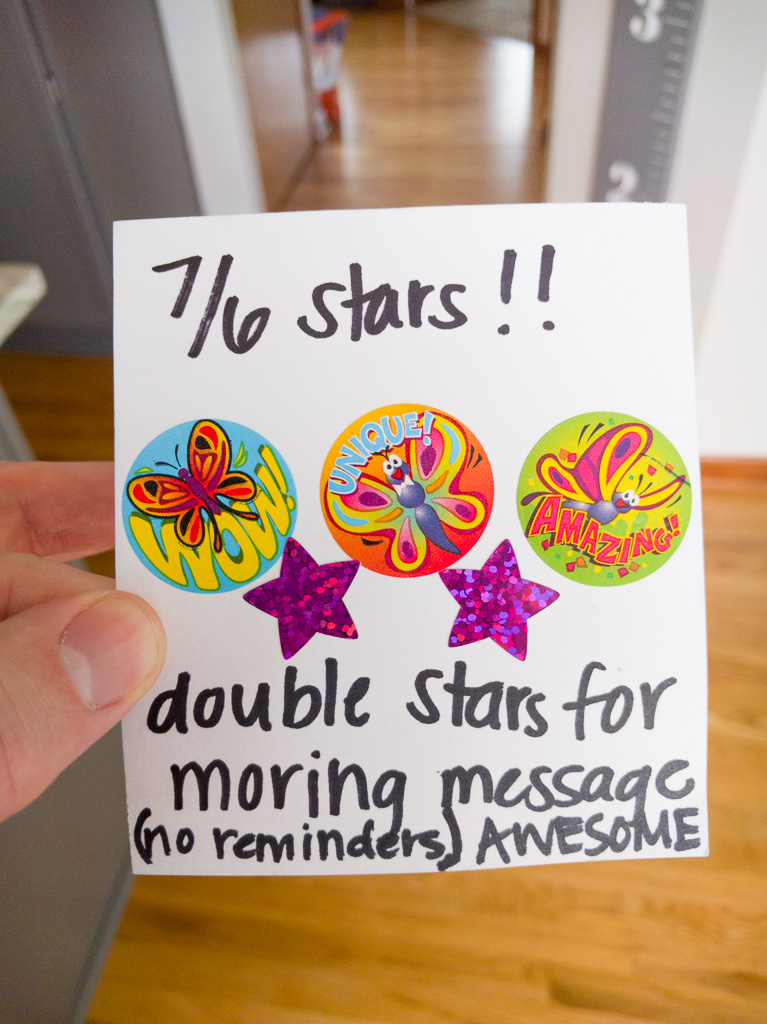 3
2
7/6 stars!!
WOW!
UNIQUE!
AMAZING!!
double stars for
moring message
(no reminders) AWESOME